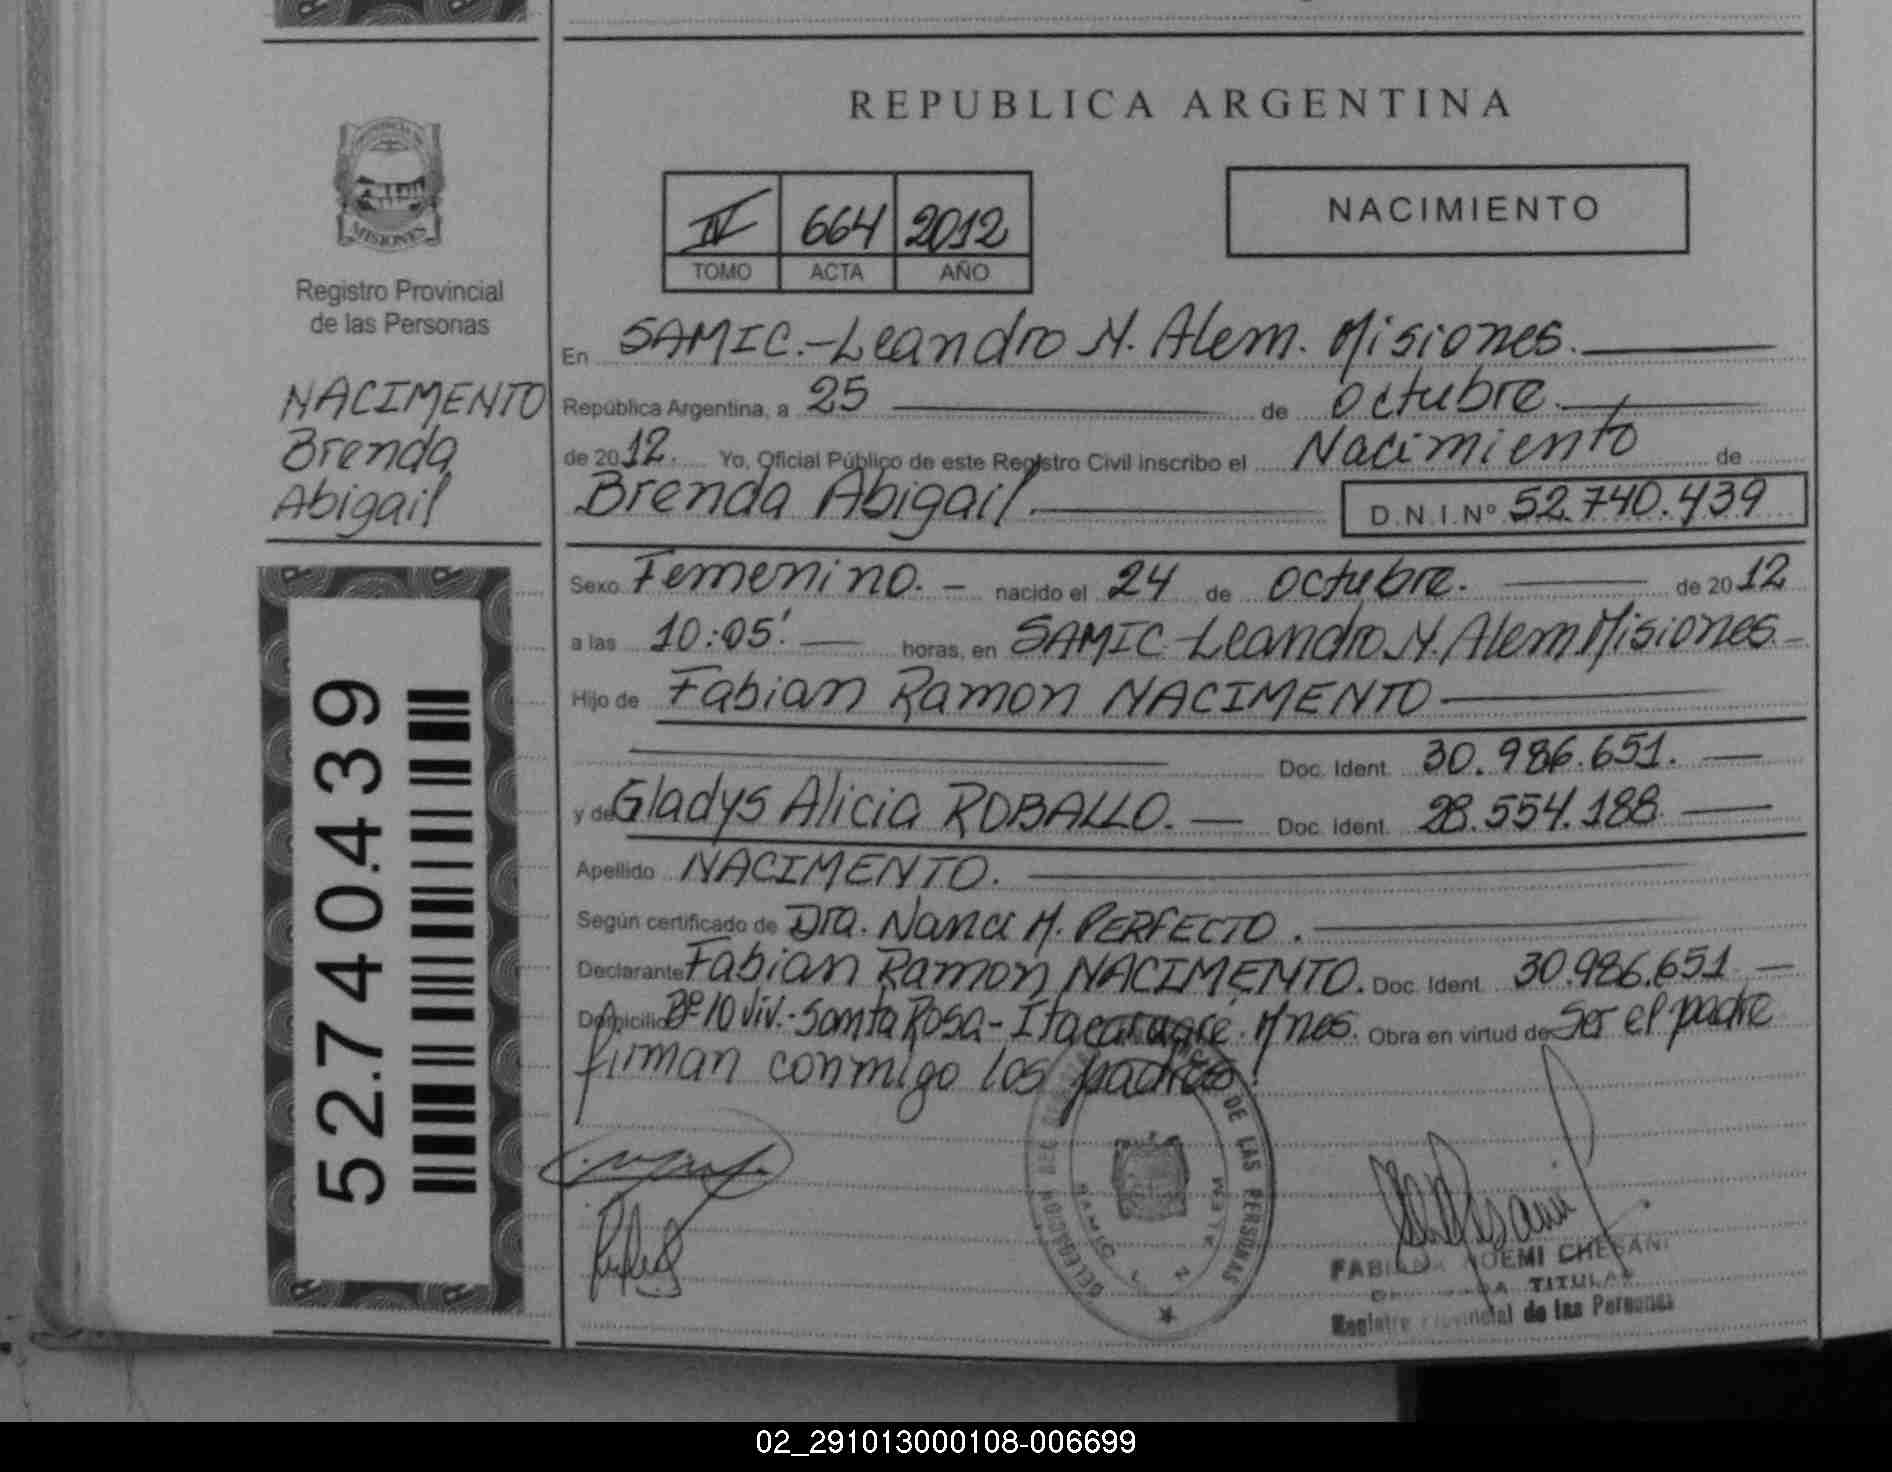 REPUBLICA ARGENTINA
MISIONES
Registro Provincial
de las Personas
NACIMENTO
Brenda
Abigail
52.740.439
IV 664 2012
TOMO ACTA AÑO
NACIMIENTO
En SAMIC.-Leandro N. Alem. Misiones.
República Argentina, a 25 de octubre.
de 2012. Yo, Oficial Público de este Registro Civil inscribo el Nacimiento de
Brenda Abigail. D.N.I.Nº 52.740.439
Sexo Femenino. - nacido el 24 de octubre. de 2012
a las 10:05' horas, en SAMIC-Leandro N. Alem Misiones.-
Hijo de Fabian Ramon NACIMENTO
Doc. Ident. 30.986.651.
y de Gladys Alicia ROBALLO. Doc. Ident. 28.554.188
Apellido NACIMENTO.
Según certificado de Dra. Nanci M. PERFECTO.
Declarante Fabian Ramon NACIMENTO. Doc. Ident. 30.986.651
Domicilio Bº 10 viv.-Santa Rosa- Itacaruare. Mnes. Obra en virtud de Ser el padre
firman conmigo los padres.
DE LAS PERSONAS
SAMIC L. N.
FABIANA NOEMI CHESANI
TITULAR
Registro Provincial de las Personas
02_291013000108-006699